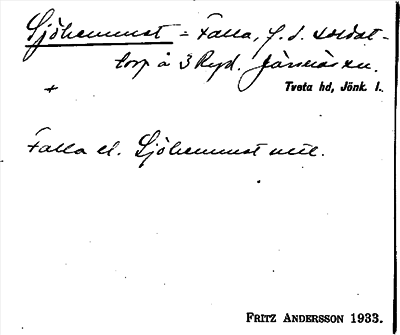 Sjöhemmet = Falla, f. d. soldat-
torp å 3 Ryd. Järsnäs sn.
+ Tveta hd, Jönk. l.
Falla el. Sjöhemmet uttl.
FRITZ ANDERSSON 1933.